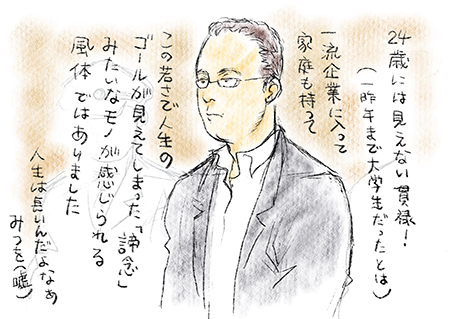 24歳には見えない貫禄!
(一昨年まで大学生だったとは)
一流企業に入って
家庭も持って
この若さで人生の
ゴールが見えてしまった「諦念」
みたいなモノが感じられる
風体ではありました
人生は長いんだよなぁ
みつを(嘘)